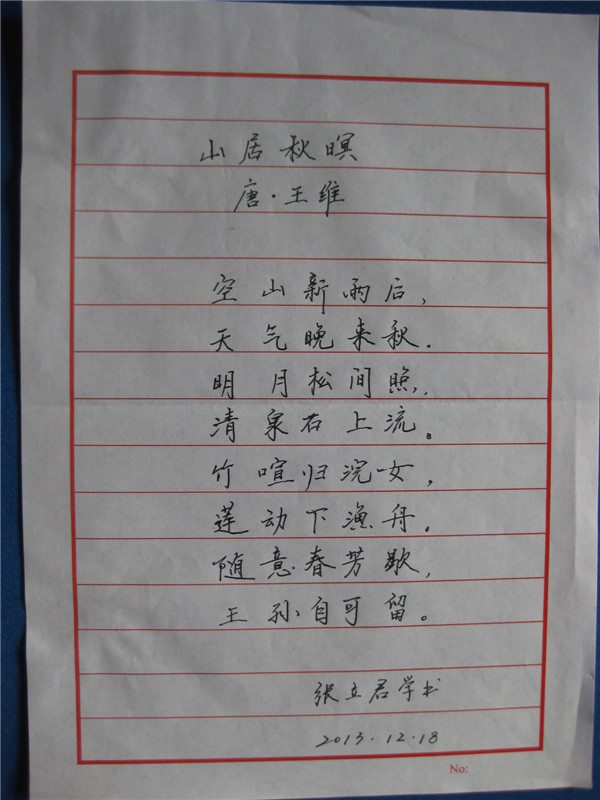 山居秋暝
唐·王维
空山新雨后,
天气晚来秋.
明月松间照,
清泉石上流。
竹喧归浣女,
莲动下渔舟.
随意春芳歇,
王孙自可留。
张立君学书
2013.12.18
No: